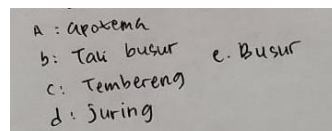 A : apotema
b : Tali busur e. Busur
c : Tembereng
d : Juring